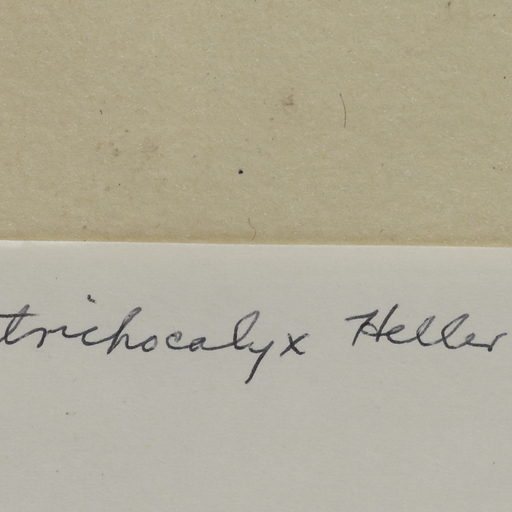 trichocalyx Heller